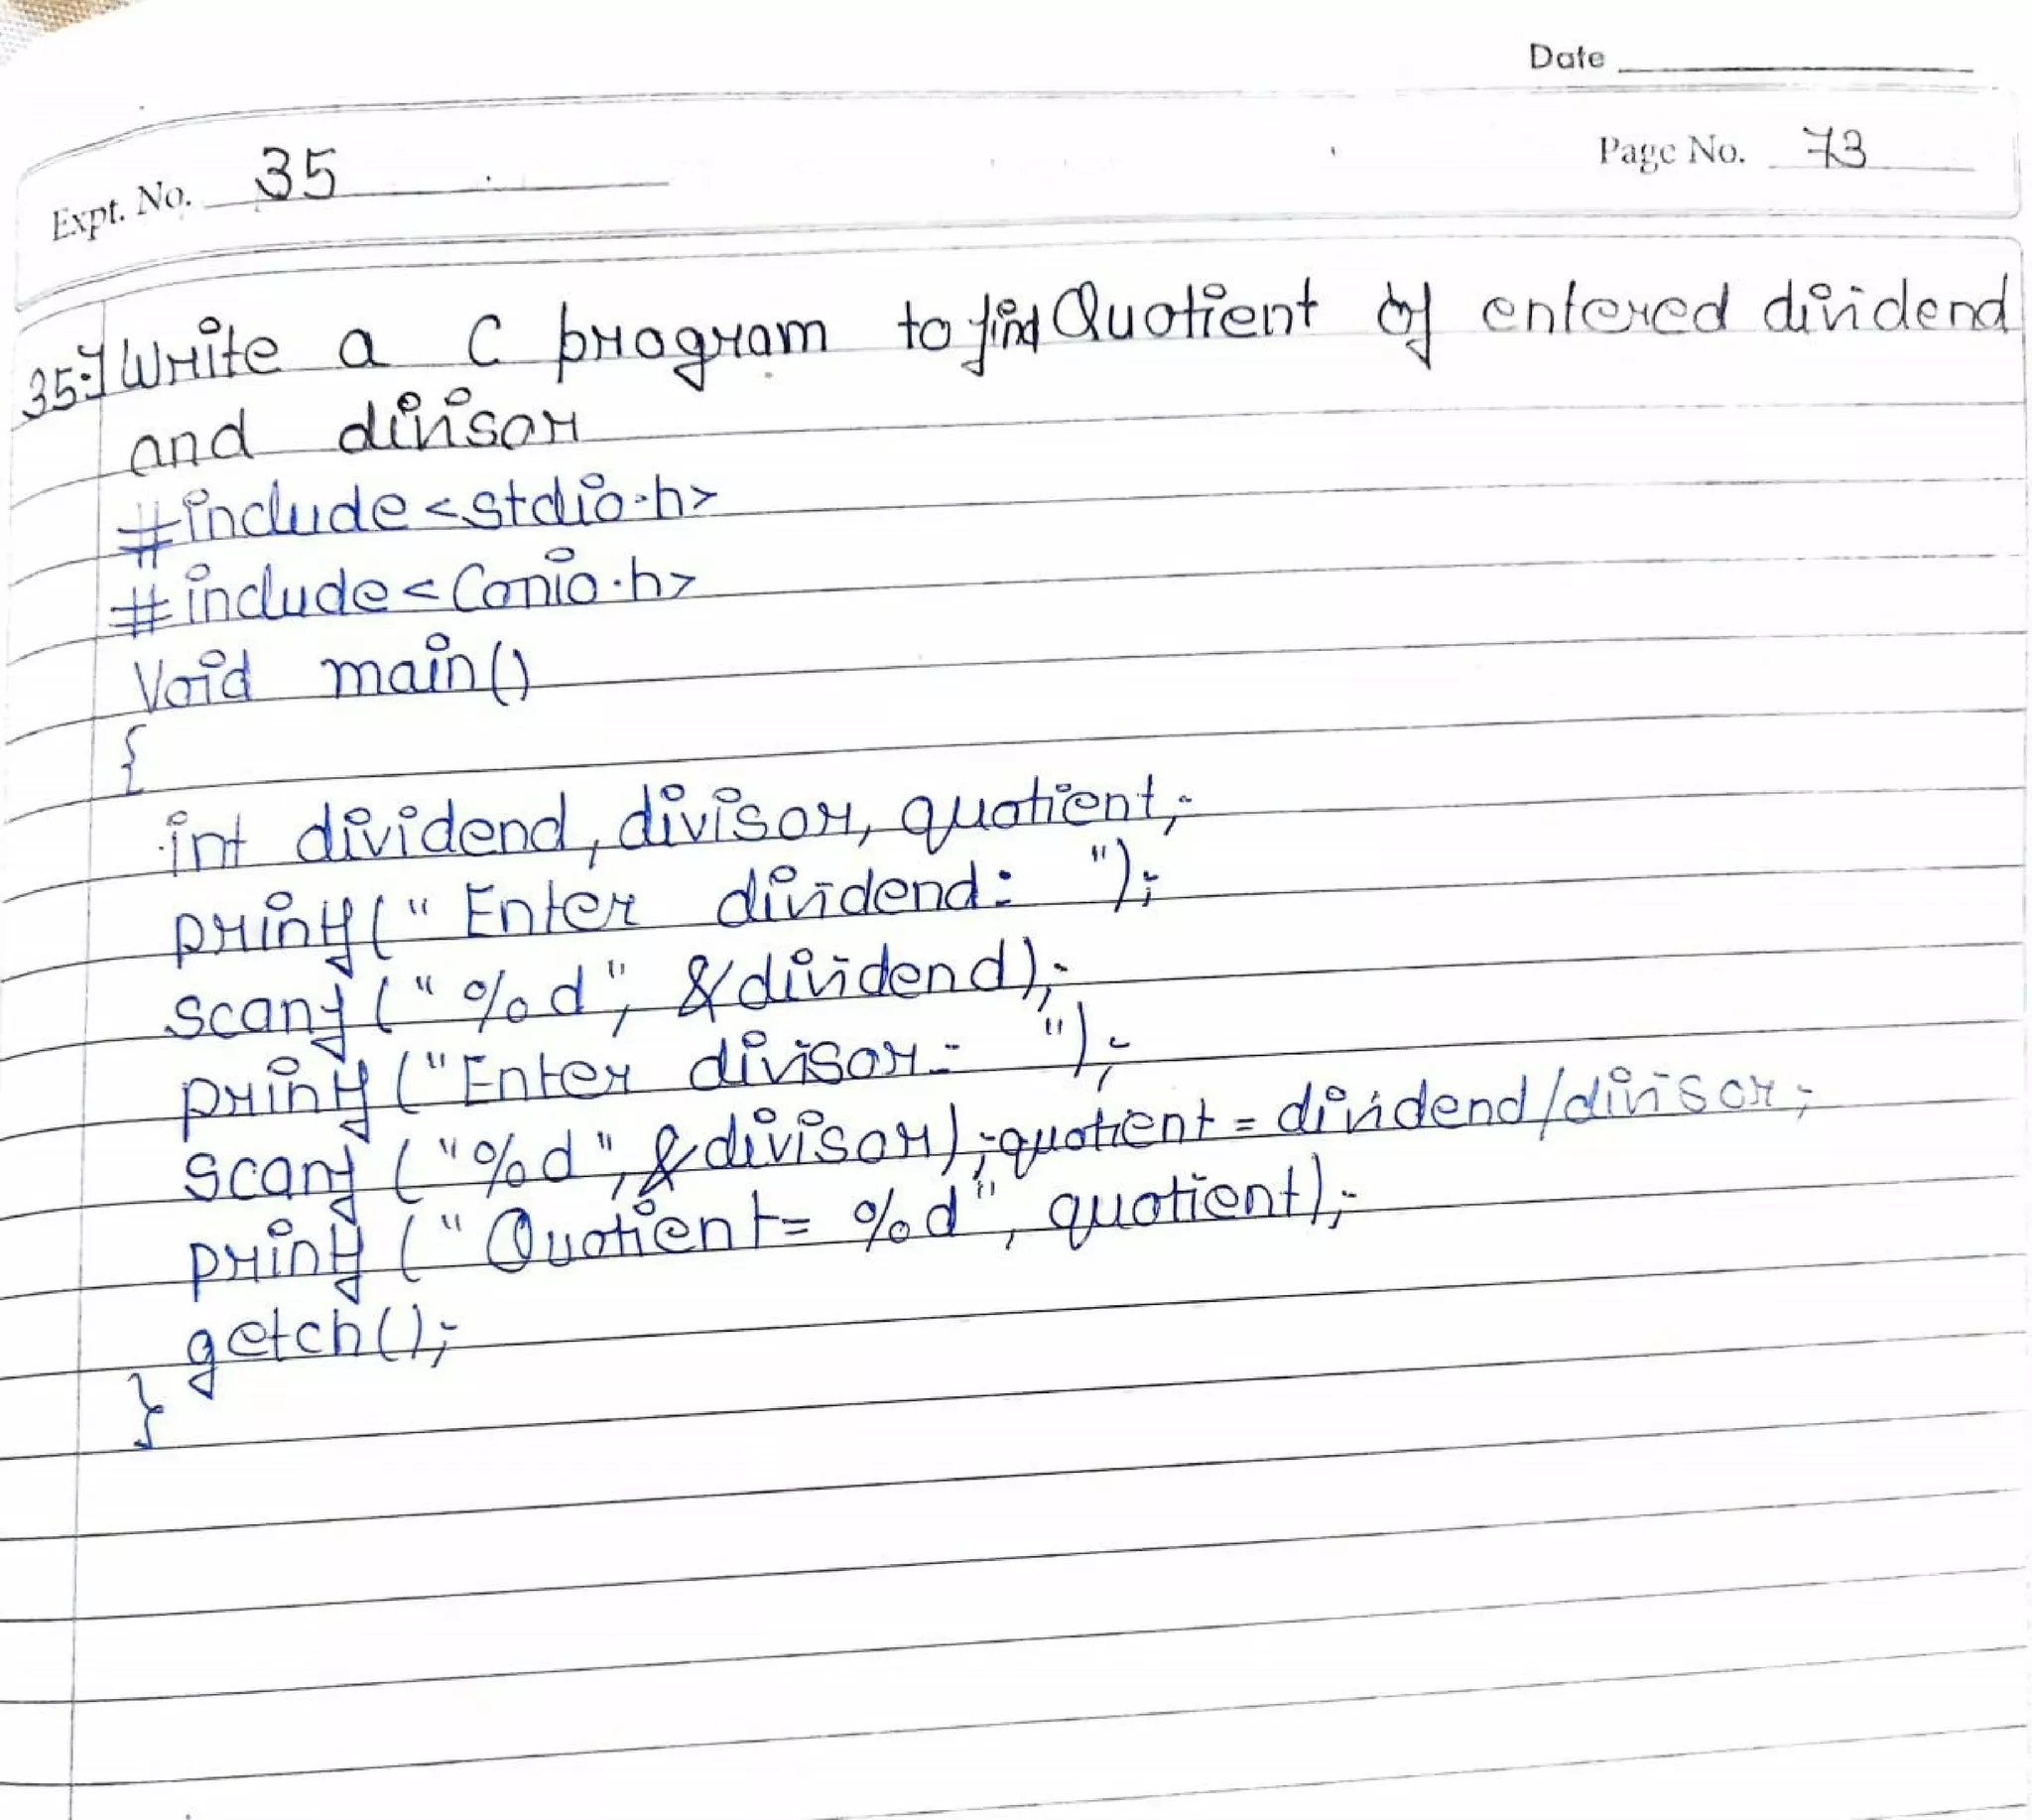 Date
Expt. No. 35
Page No. 73
35.) Write a C program to find Quotient of entered dividend
and divisor
#include<stdio.h>
#include<Conio.h>
Void main()
{
int dividend, divisor, quotient;
printf("Enter dividend: ");
scanf("%d", &dividend);
printf("Enter divisor: ");
scanf("%d", &divisor); quotient = dividend/divisor;
printf("Quotient= %d", quotient);
getch();
}